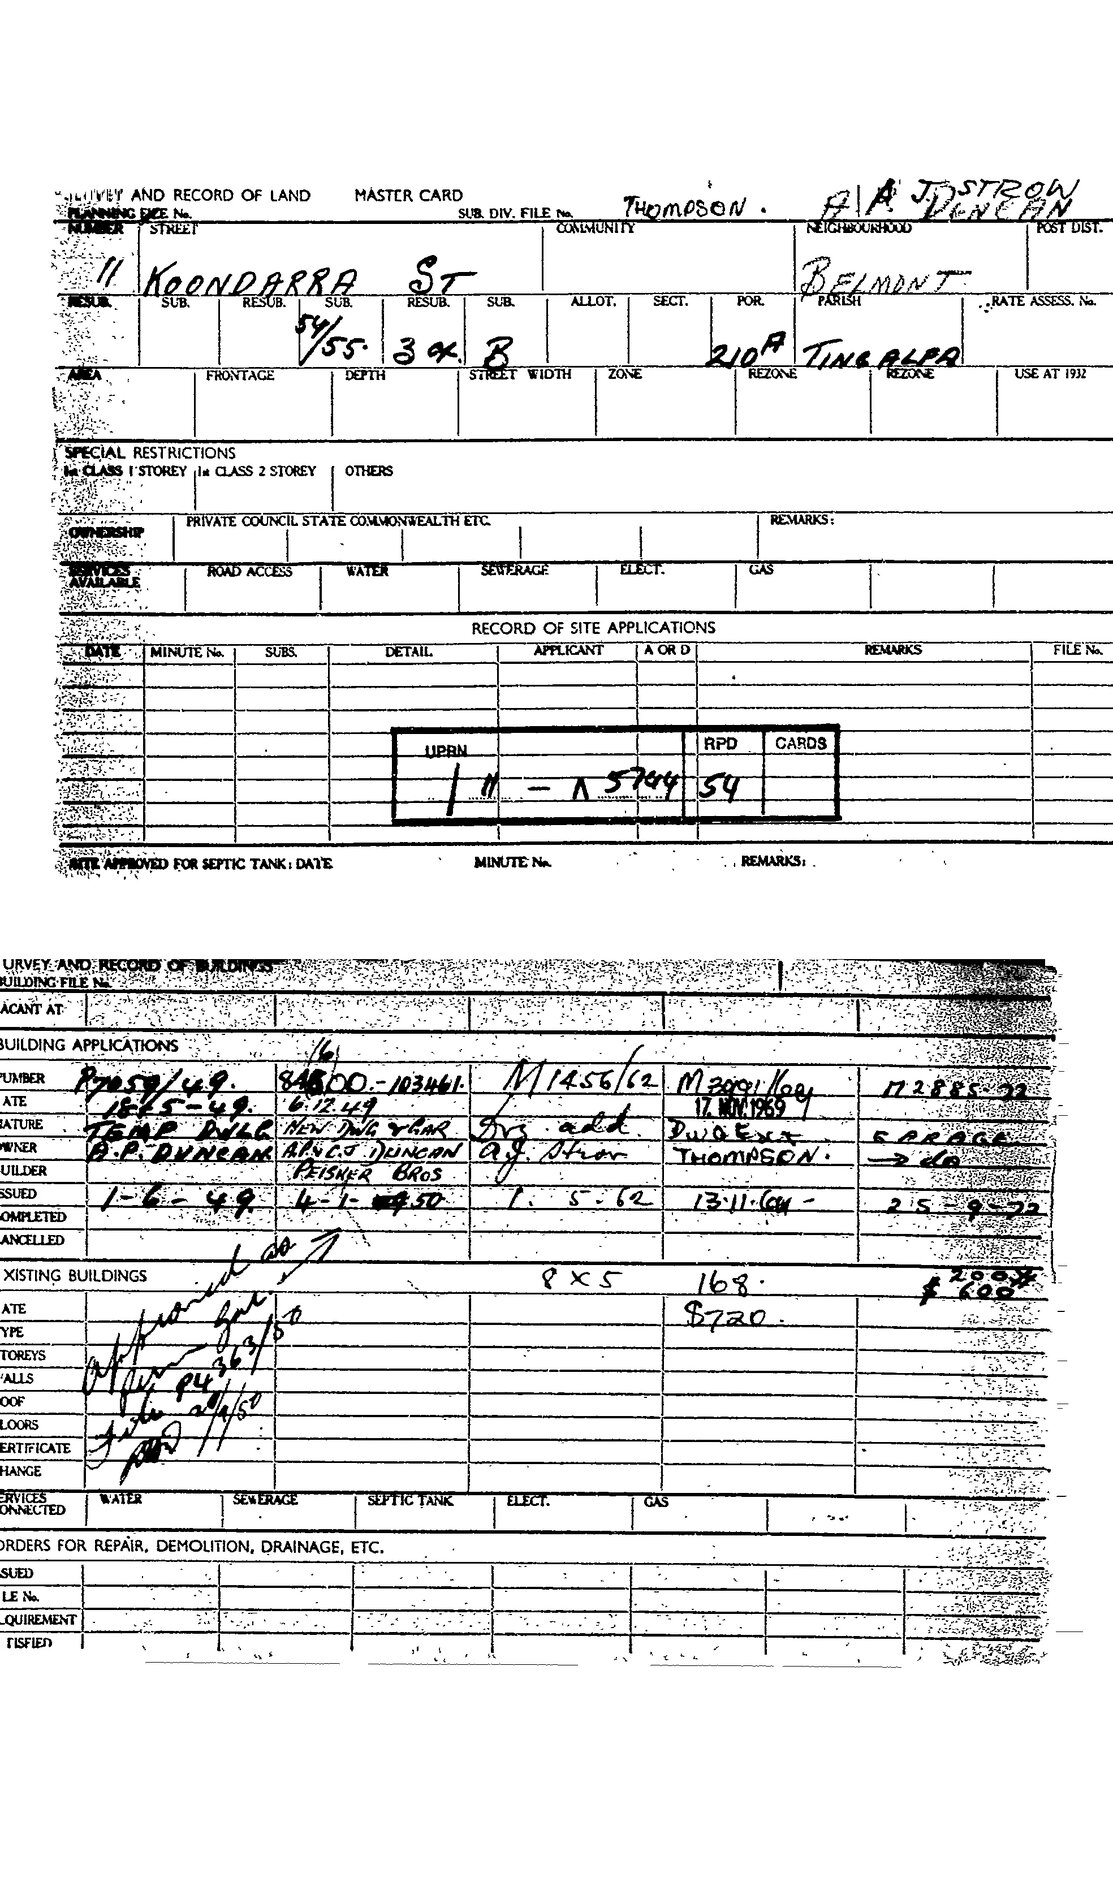 SURVEY AND RECORD OF LAND MASTER CARD
PLANNING FILE No. SUB. DIV. FILE No. THOMPSON. A J STROW
DUNCAN
NUMBER STREET COMMUNITY NEIGHBOURHOOD POST DIST.
11 KOONDARRA ST BELMONT
RESUB. SUB. RESUB. SUB. RESUB. SUB. ALLOT. SECT. POR. PARISH RATE ASSESS. No.
54/55. 3 B 210A TINGALPA
AREA FRONTAGE DEPTH STREET WIDTH ZONE REZONE REZONE USE AT 1932
SPECIAL RESTRICTIONS
1st CLASS 1 STOREY 1st CLASS 2 STOREY OTHERS
OWNERSHIP PRIVATE COUNCIL STATE COMMONWEALTH ETC. REMARKS:
SERVICES AVAILABLE ROAD ACCESS WATER SEWERAGE ELECT. GAS
RECORD OF SITE APPLICATIONS
DATE MINUTE No. SUBS. DETAIL. APPLICANT A OR D REMARKS FILE No.
UPRN RPD CARDS
11 - 5744 54
SITE APPROVED FOR SEPTIC TANK: DATE MINUTE No. REMARKS:
URVEY AND RECORD OF BUILDINGS
BUILDING FILE No.
ACANT AT
BUILDING APPLICATIONS
UMBER P7059/49. -103461. M1456/62 M2885-72
ATE 18-5-49. 6.12.49 17. NOV. 1969
ATURE TEMP DWLG NEW DWG & GAR Dwg add. DWG EXT GARAGE
OWNER A.P. DUNCAN A.P. & C.J DUNCAN A.J. Strow THOMPSON. → do
UILDER PEISKER BROS
SSUED 1-6-49. 4-1-50 1. 5.62 13.11.69- 25-9-72
OMPLETED
ANCELLED
XISTING BUILDINGS 8 X 5 168. 200
$ 600
ATE $720.
YPE
TOREYS
ALLS
OOF
LOORS
ERTIFICATE
HANGE
approved as
perm
P4363/50
ERVICES ONNECTED WATER SEWERAGE SEPTIC TANK ELECT. GAS
ORDERS FOR REPAIR, DEMOLITION, DRAINAGE, ETC.
SUED
LE No.
QUIREMENT
TISFIED